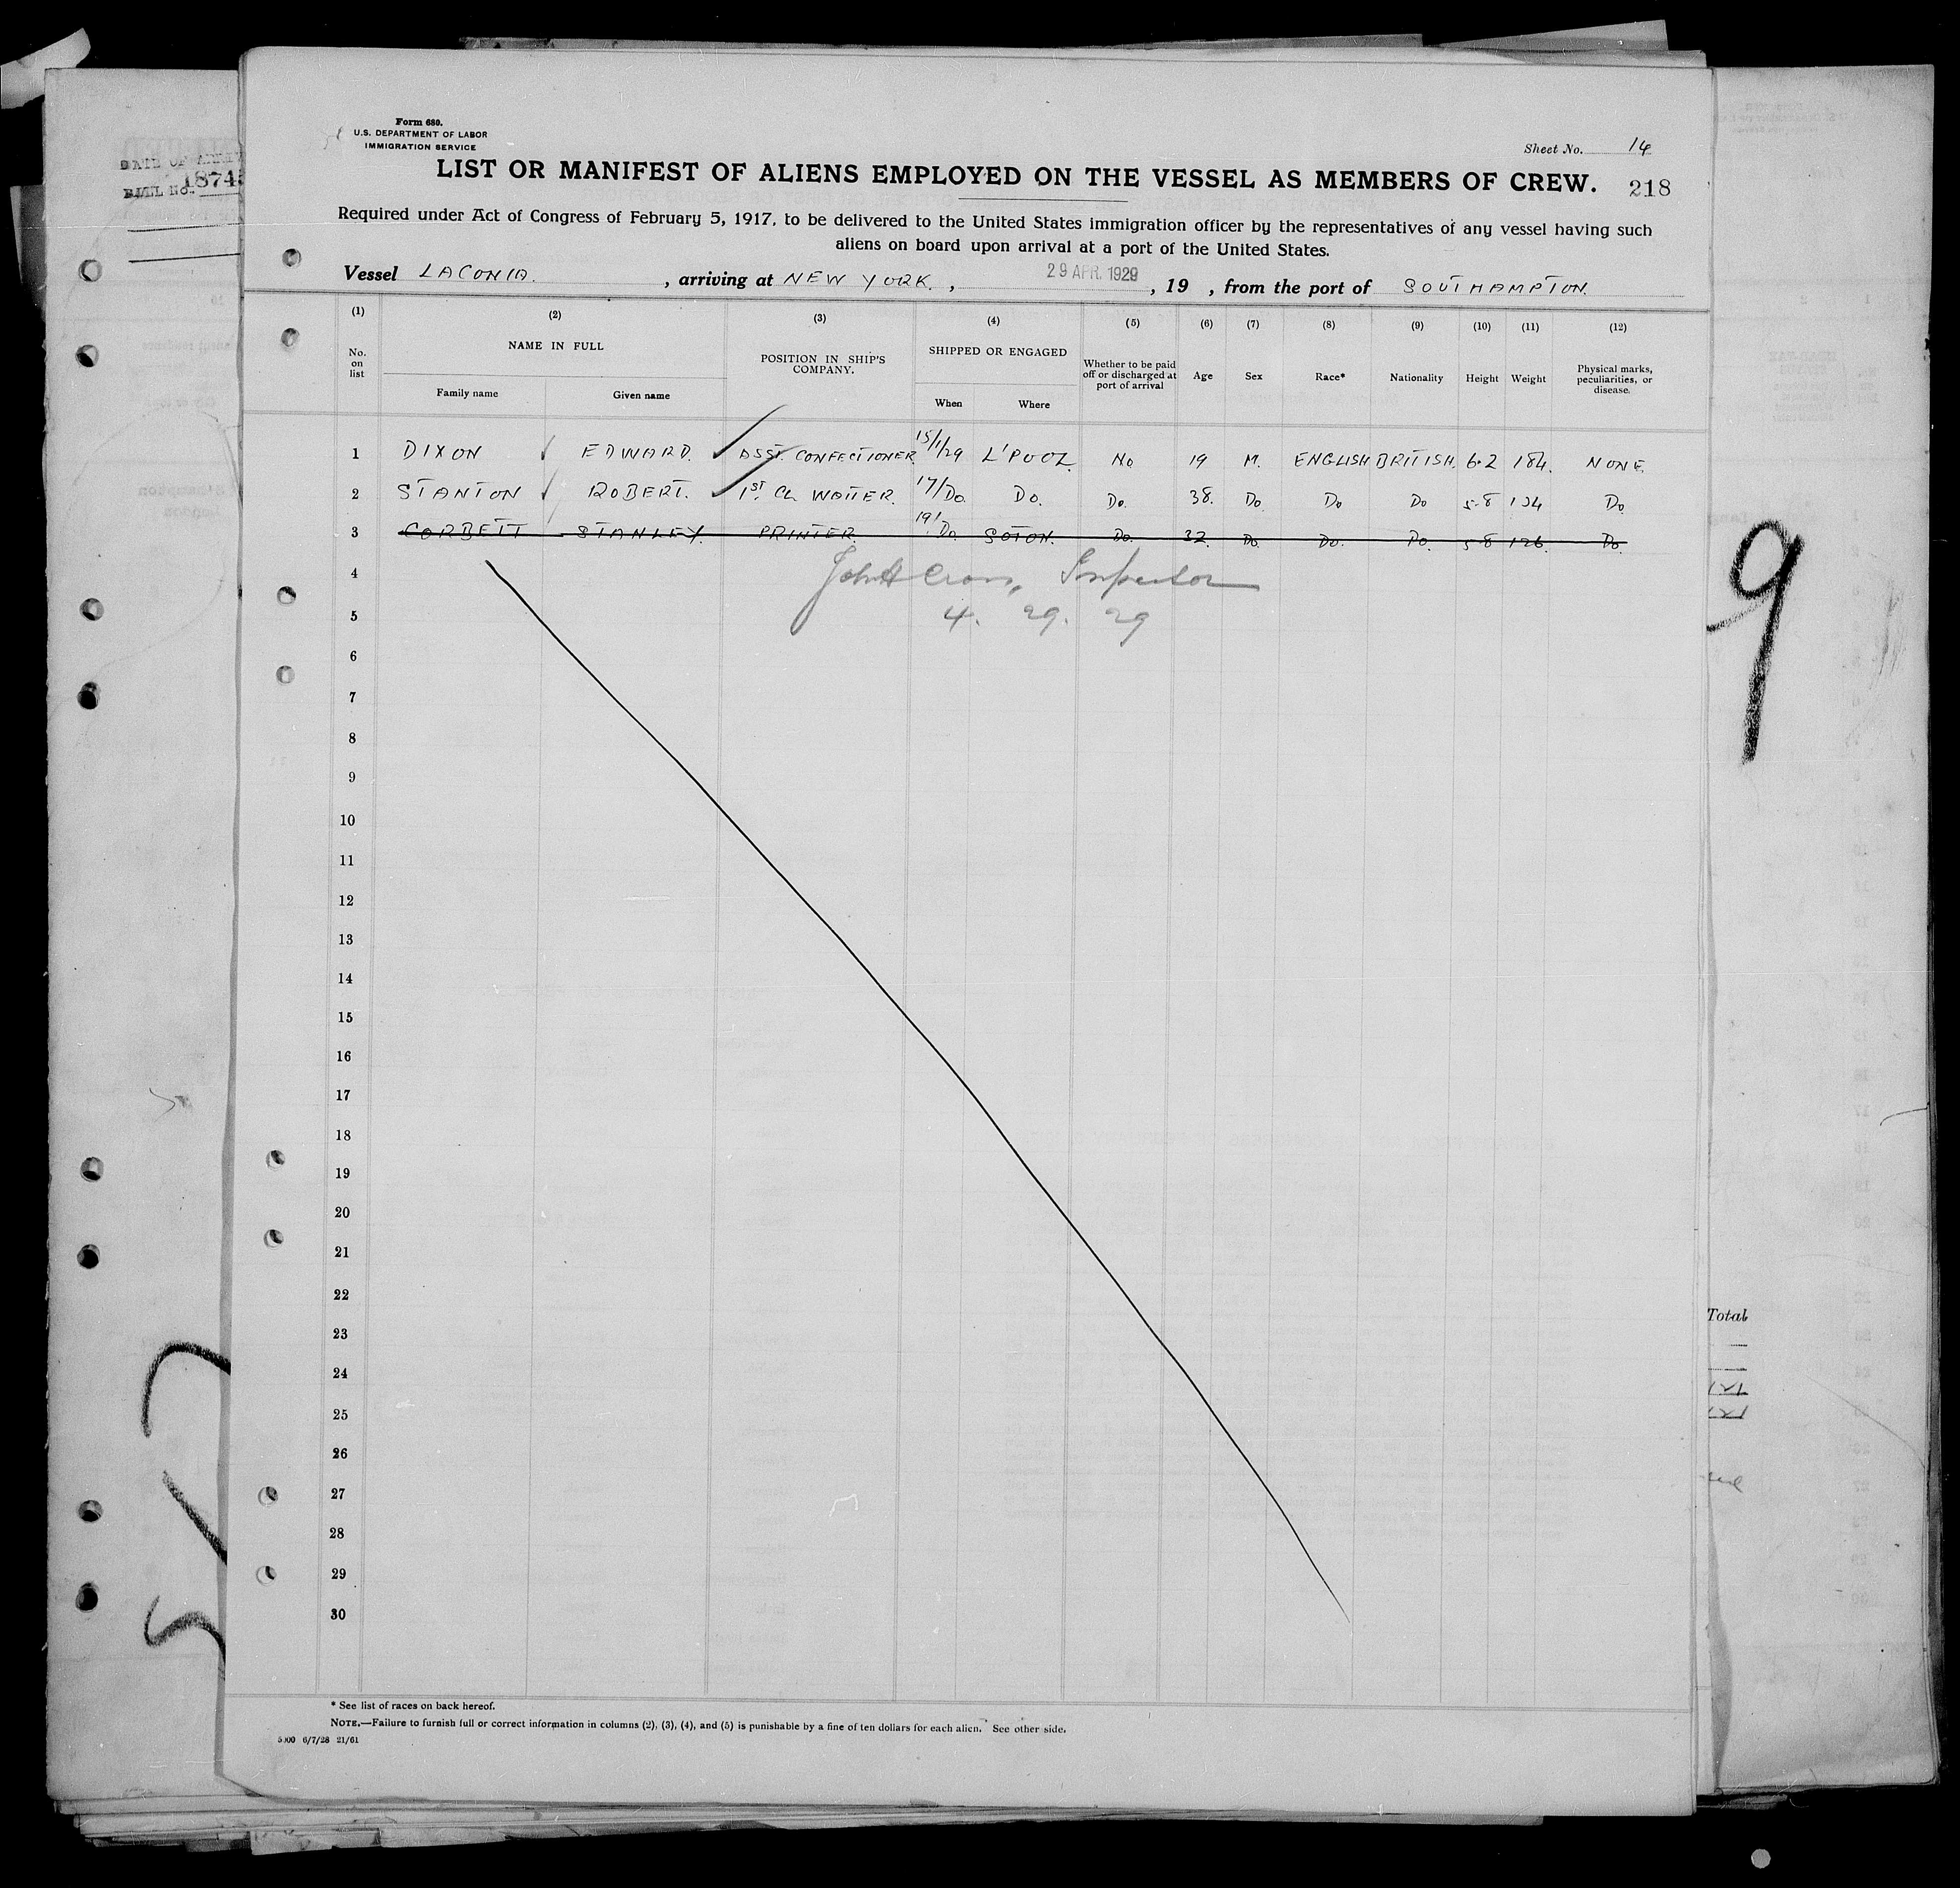 Form 680.
U.S. DEPARTMENT OF LABOR
IMMIGRATION SERVICE
Sheet No. 14
LIST OR MANIFEST OF ALIENS EMPLOYED ON THE VESSEL AS MEMBERS OF CREW. 218
Required under Act of Congress of February 5, 1917, to be delivered to the United States immigration officer by the representatives of any vessel having such
aliens on board upon arrival at a port of the United States.
Vessel LACONIA. , arriving at NEW YORK. , 29 APR. 1929 , 19 , from the port of SOUTHAMPTON.
(1) (2) (3) (4) (5) (6) (7) (8) (9) (10) (11) (12)
No. on list NAME IN FULL POSITION IN SHIP'S COMPANY. SHIPPED OR ENGAGED Whether to be paid off or discharged at port of arrival Age Sex Race* Nationality Height Weight Physical marks, peculiarities, or disease.
Family name Given name When Where
1 DIXON EDWARD. ASST. CONFECTIONER 15/1/29 L'POOL No 19 M. ENGLISH BRITISH. 6.2 184. NONE.
2 STANTON ROBERT. 1ST CL WAITER. 17/Do. Do. Do. 38. Do Do Do 5-8 134 Do
3 CORBETT STANLEY. PRINTER. 19/Do. SOTON. Do. 32. Do Do. Do. 5-8 126. Do.
4 John H Inspector
5 4. 29. 29
6
7
8
9
10
11
12
13
14
15
16
17
18
19
20
21
22
23
24
25
26
27
28
29
30
* See list of races on back hereof.
NOTE.—Failure to furnish full or correct information in columns (2), (3), (4), and (5) is punishable by a fine of ten dollars for each alien. See other side.
5000 6/7/28 21/61
DATE OF
1874
9
Total
121
121